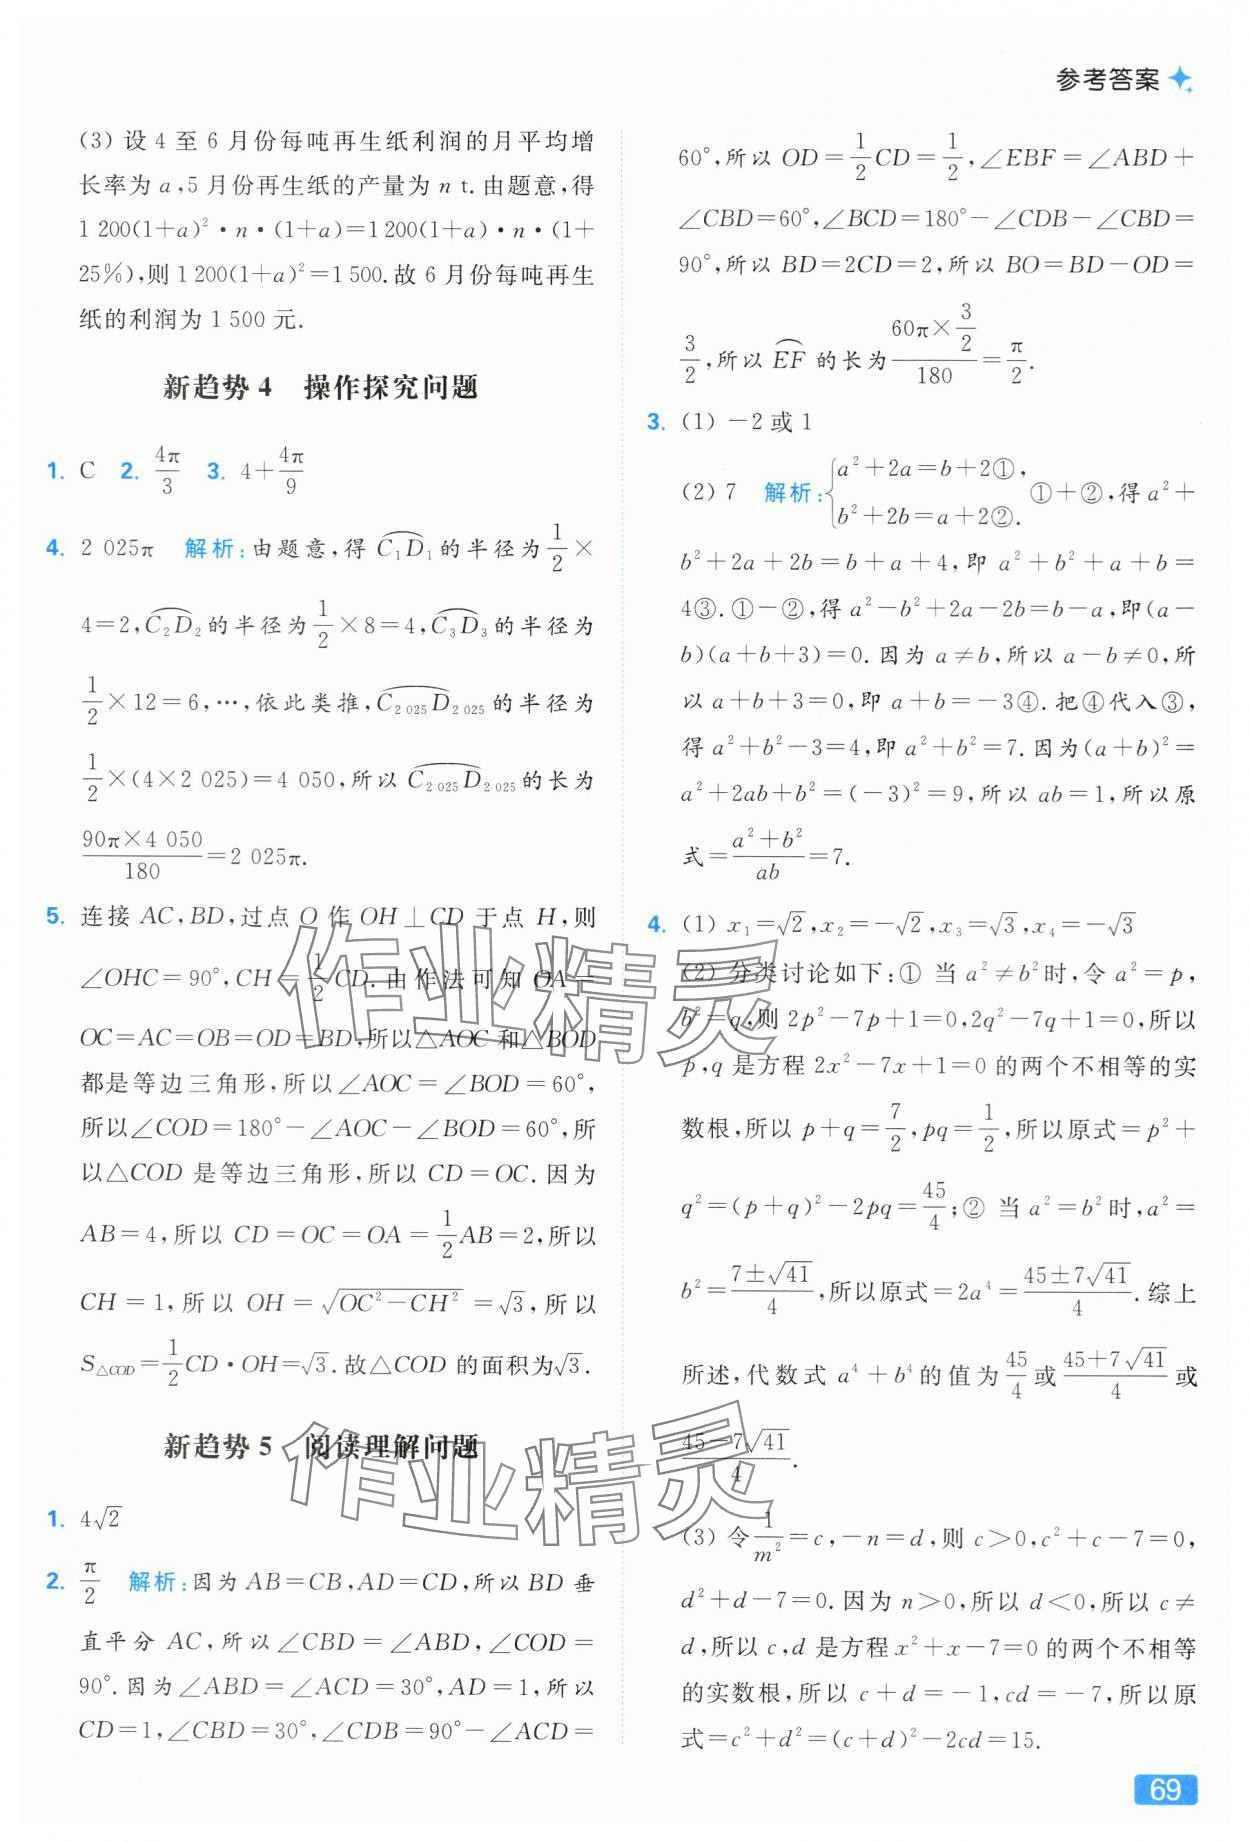 参考答案
(3) 设 4 至 6 月份每吨再生纸利润的月平均增
长率为 a,5 月份再生纸的产量为 n t.由题意,得
1 200(1+a)²·n·(1+a)=1 200(1+a)·n·(1+
25%),则 1 200(1+a)²=1 500.故 6 月份每吨再生
纸的利润为 1 500 元.
新趋势 4 操作探究问题
1. C 2. 4π/3 3. 4+4π/9
4. 2 025π 解析:由题意,得 C₁D₁的半径为1/2×
4=2,C₂D₂的半径为1/2×8=4,C₃D₃的半径为
1/2×12=6,…,依此类推,C₂₀₂₅D₂₀₂₅的半径为
1/2×(4×2 025)=4 050,所以 C₂₀₂₅D₂₀₂₅的长为
90π×4 050/180=2 025π.
5. 连接 AC,BD,过点 O 作 OH⊥CD 于点 H,则
∠OHC=90°,CH=1/2CD.由作法可知 OA=
OC=AC=OB=OD=BD,所以△AOC 和△BOD
都是等边三角形,所以∠AOC=∠BOD=60°,
所以∠COD=180°-∠AOC-∠BOD=60°,所
以△COD 是等边三角形,所以 CD=OC.因为
AB=4,所以 CD=OC=OA=1/2AB=2,所以
CH=1,所以 OH=√(OC²-CH²)=√3,所以
S△COD=1/2CD·OH=√3.故△COD 的面积为√3.
新趋势 5 阅读理解问题
1. 4√2
2. π/2 解析:因为 AB=CB,AD=CD,所以 BD 垂
直平分 AC,所以∠CBD=∠ABD,∠COD=
90°.因为∠ABD=∠ACD=30°,AD=1,所以
CD=1,∠CBD=30°,∠CDB=90°-∠ACD=
60°,所以 OD=1/2CD=1/2,∠EBF=∠ABD+
∠CBD=60°,∠BCD=180°-∠CDB-∠CBD=
90°,所以 BD=2CD=2,所以 BO=BD-OD=
3/2,所以 EF 的长为(60π×3/2)/180=π/2.
3. (1) -2 或 1
(2) 7 解析:{a²+2a=b+2①, b²+2b=a+2②. ①+②,得 a²+
b²+2a+2b=b+a+4,即 a²+b²+a+b=
4③.①-②,得 a²-b²+2a-2b=b-a,即(a-
b)(a+b+3)=0.因为 a≠b,所以 a-b≠0,所
以 a+b+3=0,即 a+b=-3④.把④代入③,
得 a²+b²-3=4,即 a²+b²=7.因为(a+b)²=
a²+2ab+b²=(-3)²=9,所以 ab=1,所以原
式=(a²+b²)/ab=7.
4. (1) x₁=√2,x₂=-√2,x₃=√3,x₄=-√3
(2) 分类讨论如下:① 当 a²≠b²时,令 a²=p,
b²=q,则 2p²-7p+1=0,2q²-7q+1=0,所以
p,q 是方程 2x²-7x+1=0 的两个不相等的实
数根,所以 p+q=7/2,pq=1/2,所以原式=p²+
q²=(p+q)²-2pq=45/4;② 当 a²=b²时,a²=
b²=(7±√41)/4,所以原式=2a⁴=(45±7√41)/4.综上
所述,代数式 a⁴+b⁴的值为45/4或(45+7√41)/4或
(45-7√41)/4.
(3) 令1/m²=c,-n=d,则 c>0,c²+c-7=0,
d²+d-7=0.因为 n>0,所以 d<0,所以 c≠
d,所以 c,d 是方程 x²+x-7=0 的两个不相等
的实数根,所以 c+d=-1,cd=-7,所以原
式=c²+d²=(c+d)²-2cd=15.
作业精灵
作业精灵
69